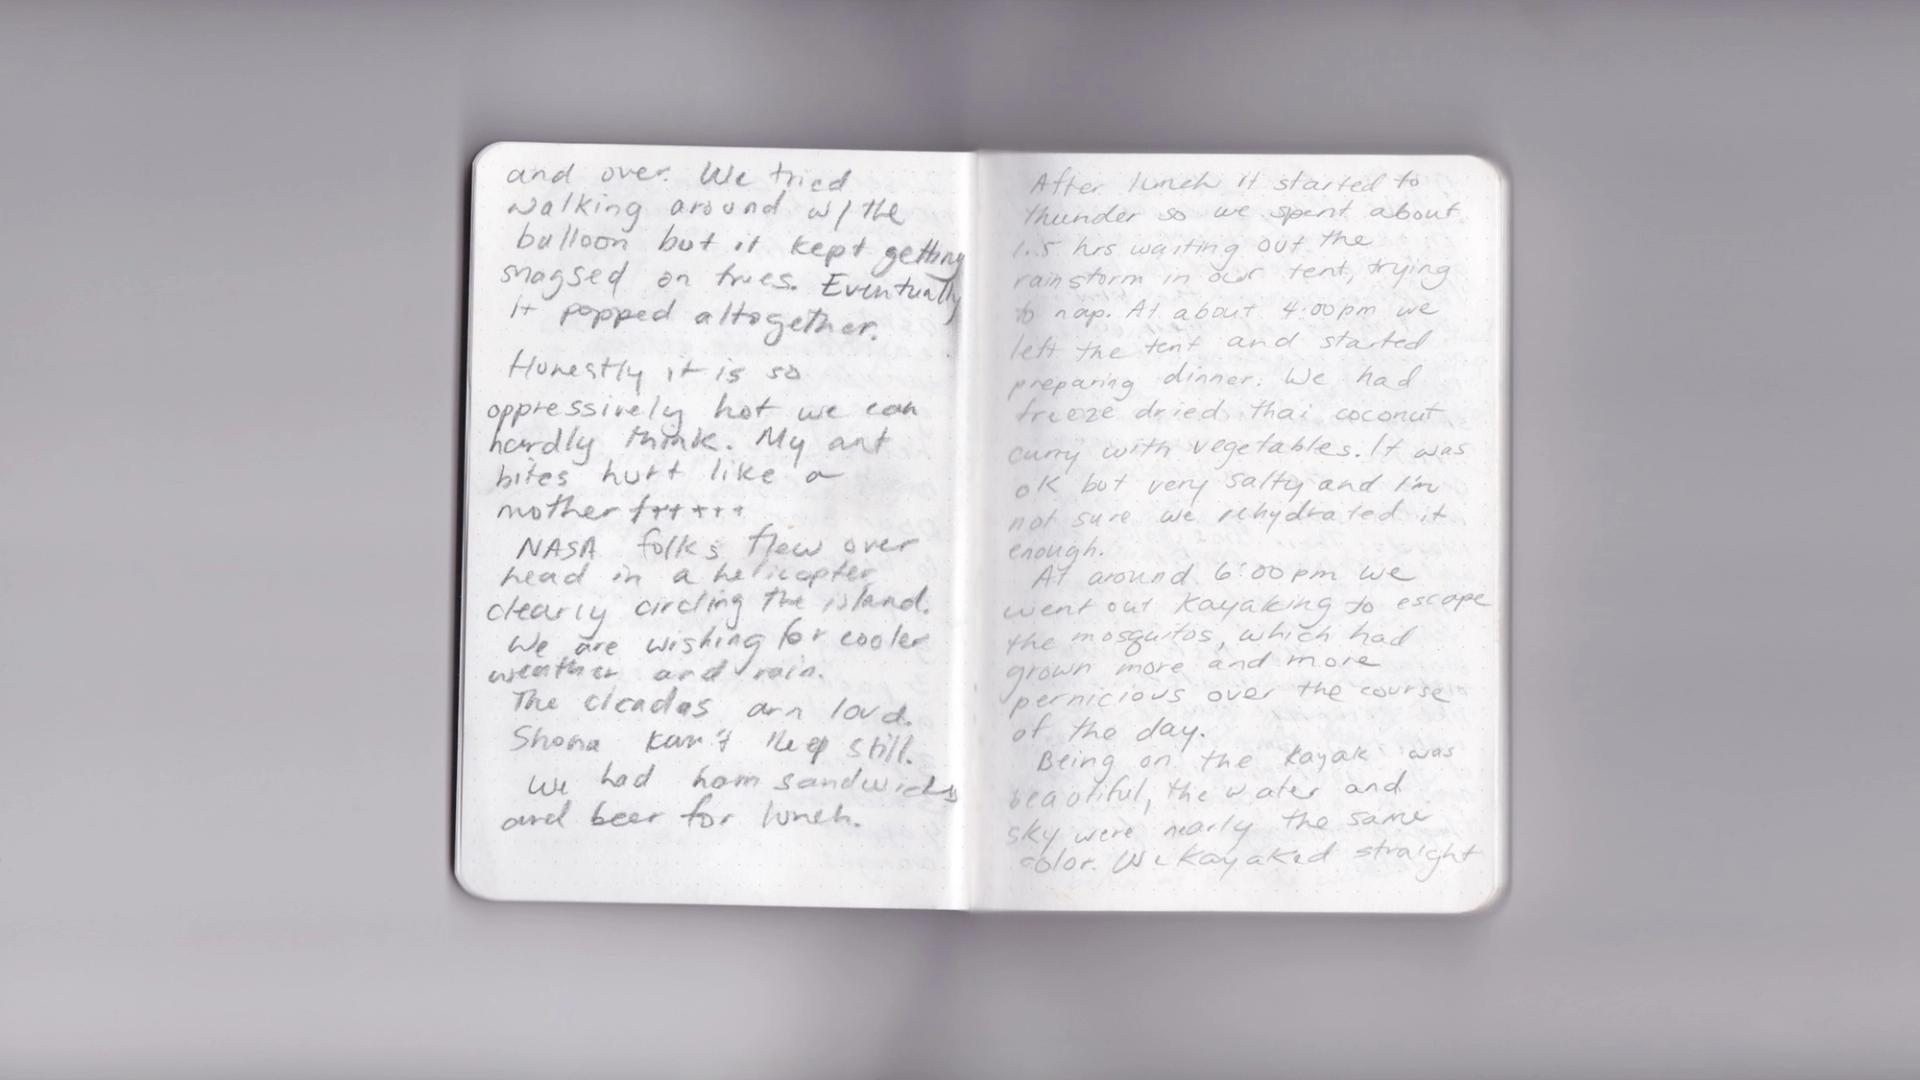 and over. We tried
walking around w/ the
balloon but it kept getting
snagsed on trees. Eventually
it popped altogether.
Honestly it is so
oppressively hot we can
hardly think. My ant
bites hurt like a
mother f+++++
NASA folks flew over
head in a helicopter
clearly circling the island.
We are wishing for cooler
weather and rain.
The cicadas are loud.
Shona kan't keep still.
We had ham sandwiches
and beer for lunch.
After lunch it started to
thunder so we spent about
1.5 hrs waiting out the
rainstorm in our tent, trying
to nap. At about 4:00pm we
left the tent and started
preparing dinner. We had
freeze dried thai coconut
curry with vegetables. It was
ok but very salty and I'm
not sure we rehydrated it
enough.
At around 6:00pm we
went out kayaking to escape
the mosquitos, which had
grown more and more
pernicious over the course
of the day.
Being on the kayak was
beautiful, the water and
sky were nearly the same
color. We kayaked straight